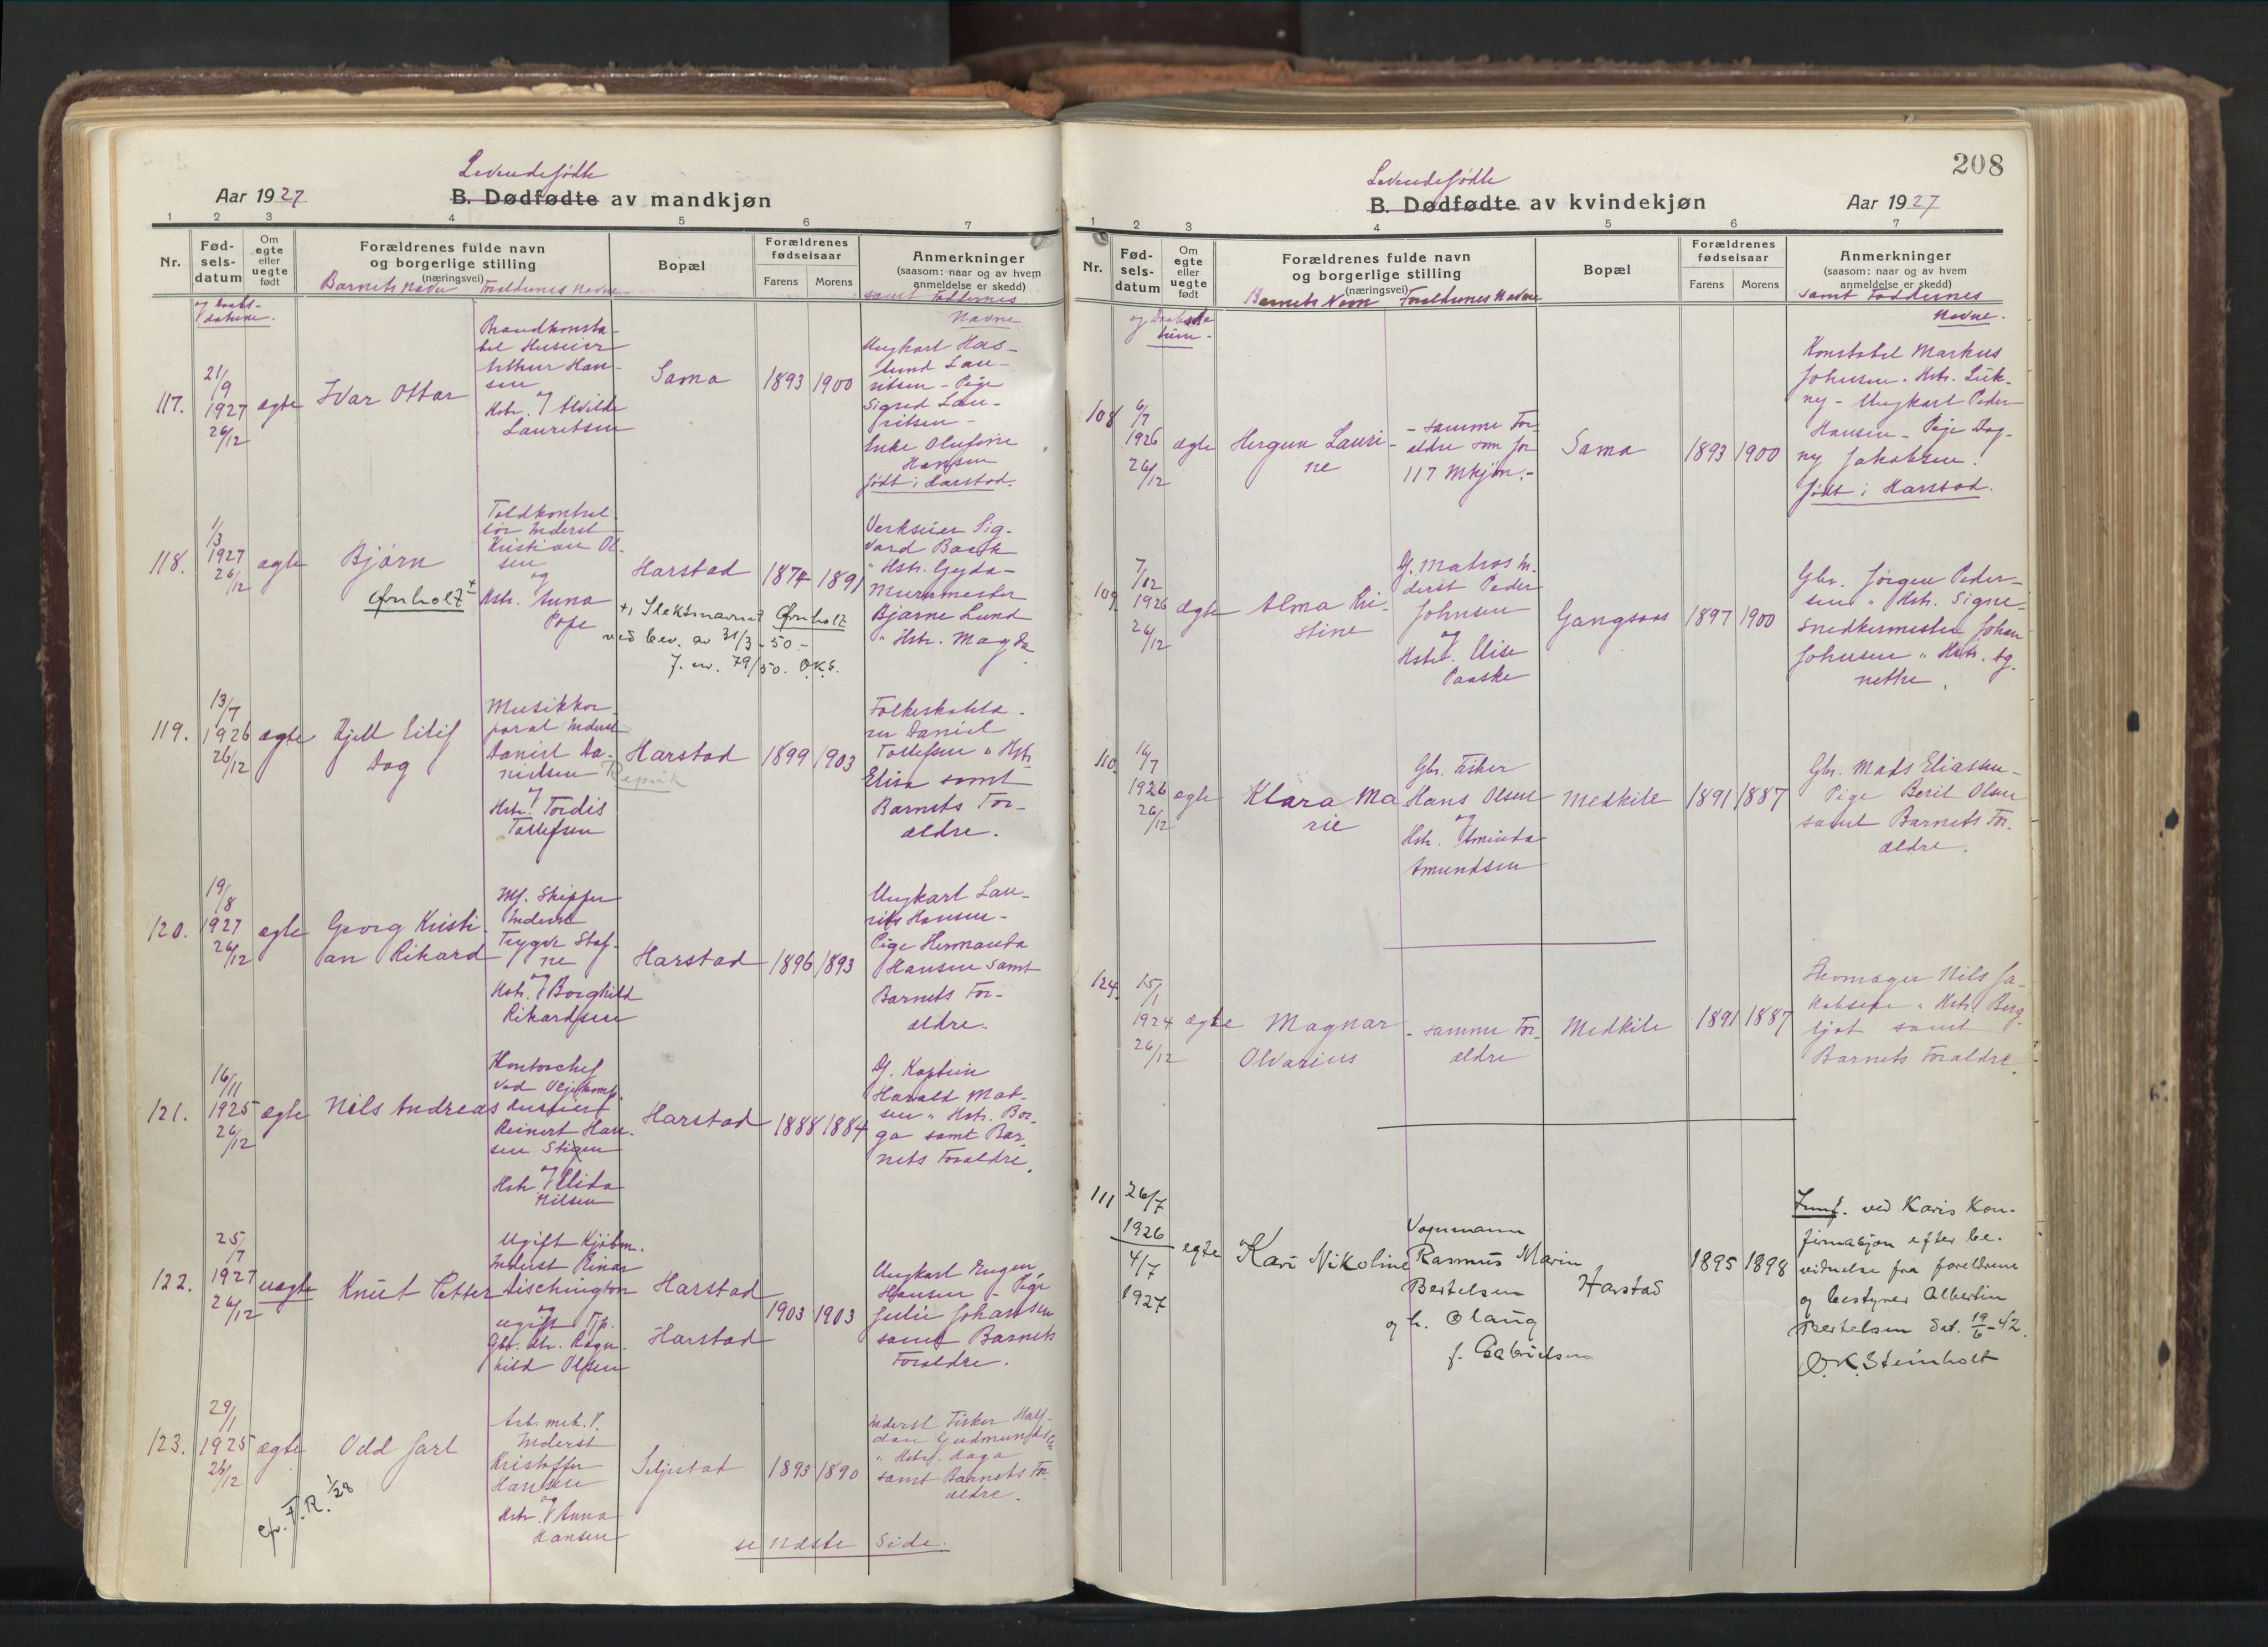 Levendefødte
Aar 1927
B. Dødfødte av mandkjøn
1 2 3 4 5 6 7
Nr.
Fød-
sels-
datum
Om
egte
eller
uegte
født
Forældrenes fulde navn
og borgerlige stilling
(næringsvei)
Barnets Navn Forældrenes Navne
Bopæl
Forældrenes
fødselsaar
Farens Morens
Anmerkninger
(saasom: naar og av hvem
anmeldelse er skedd)
samt Faddernes
Navne
og Daabs-
datum.
117.
21/9
1927
26/12
ægte
Ivar Ottar
Brandkonsta-
bel Huseier
Arthur Han-
sen
og
Hstr. Alvilde
Lauritsen
Sama
1893 1900
Ungkarl Has-
lund Lau-
ritsen - Pige
Sigrid Lau-
ritsen -
Enke Olufine
Hansen
født i Harstad.
118.
1/3
1927
26/12
ægte
Bjørn
Ørnholt +
Toldkontrol-
lør Inderst
Kristian Ol-
sen
og
Hstr. Anna
Pope
Harstad
1874 1891
+, Slektsnavnet Ørnholt
ved bev. av 31/3-50.-
J. nr. 79/50. O.K.S.
Verkseier Sig-
vard Back
" Hstr. Gyda -
Murmester
Bjarne Lund
" Hstr. Magda
119.
13/7
1926
26/12
ægte
Kjell Eilif
Dag
Musikkor-
poral Inderst
Daniel Da-
nielsen
og
Hstr. Tordis
Tollefsen
Harstad
1899 1903
Daniel
Tollefsen " Hstr.
Elisa samt
Barnets For-
ældre.
120.
19/8
1927
26/12
ægte
Georg Kristi-
an Rikard
Mf. Skipper
Inderst
Trygve Staf-
ne
og
Hstr. Borghild
Rikardsen
Harstad
1896 1893
Ungkarl Lau-
rits Hansen -
Pige Hermanda
Hansen samt
Barnets For-
ældre.
121.
16/11
1925
26/12
ægte
Nils Andreas
Kontorchef
ved Oljekomp.
Huseier
Reinert Han-
sen Stigen
og
Hstr. Elida
Nilsen
Harstad
1888 1884
Df. Kaptein
Harald Mad-
sen " Hstr. Bor-
ga samt Bar-
nets Forældre.
122.
25/7
1927
26/12
uægte
Knut Petter
Ugift Kjøbm.
Inderst Einar
Dischington
og
ugift Tjp.
Gbr. dtr. Ragn-
hild Olsen
Harstad
Harstad
1903 1903
Ungkarl Eugen
Hansen - Pige
Julie Johansen
samt Barnets
Forældre.
123.
29/1
1925
26/12
ægte
Odd Jarl
cfr. F.R. 1/28
Arb. mek. V.
Inderst
Kristoffer
Hansen
og
Hstr. Anna
Hansen
Seljestad
1893 1890
Inderst Fisker Half-
dan Gudmundsen
" Hstr. Haga
samt Barnets For-
ældre.
se næste Side.
208
Levendefødte
B. Dødfødte av kvindekjøn
Aar 1927
1 2 3 4 5 6 7
Nr.
Fød-
sels-
datum
Om
egte
eller
uegte
født
Forældrenes fulde navn
og borgerlige stilling
(næringsvei)
Barnets Navn Forældrenes Navne
Bopæl
Forældrenes
fødselsaar
Farens Morens
Anmerkninger
(saasom: naar og av hvem
anmeldelse er skedd)
samt Faddernes
Navne.
og Daabsda-
tum.
108
6/7
1926
26/12
ægte
Hergun Lauri-
ne
- samme For-
ældre som for
117 Mkjøn.-
Sama
1893 1900
Konstabel Markus
Johnsen. Hstr. Lük-
ny - Ungkarl Peder
Hansen - Pige Dag-
ny Jakobsen.
født i Harstad.
109
7/12
1926
26/12
ægte
Alma Kri-
stine
Df. Matros In-
derst Peder
Johnsen
og
Hstr. Elise
Paaske
Gangsaas
1897 1900
Gbr. Jørgen Peder-
sen " Hstr. Signe -
Snedkermester Johan
Johnsen " Hstr. Ag-
nethe.
110.
16/7
1926
26/12
ægte
Klara Ma
rie
Gbr. Fisker
Hans Olsen
og
Hstr. Aminda
Amundsen
Medkile
1891 1887
Gbr. Mads Eliassen -
Pige Beret Olsen
samt Barnets For-
ældre.
124.
15/1
1924
26/12
ægte
Magnar
Olvarius
- samme For-
ældre
Medkile
1891 1887
Skomager Nils Ja-
kobsen " Hstr. Berg-
ljot samt
Barnets Forældre.
111
26/7
1926
4/7
1927
egte
Kari Nikoline
Vognmann
Rasmus Marin
Bertelsen
og h. Olaug
f. Gabrielsen
Harstad
1895 1898
Innf. ved Karis Kon-
firmasjon efter be-
vidnelse fra foreldrene
og bestyrer Albertin
Bertelsen dat. 19/6-42.
O.K. Steinholt